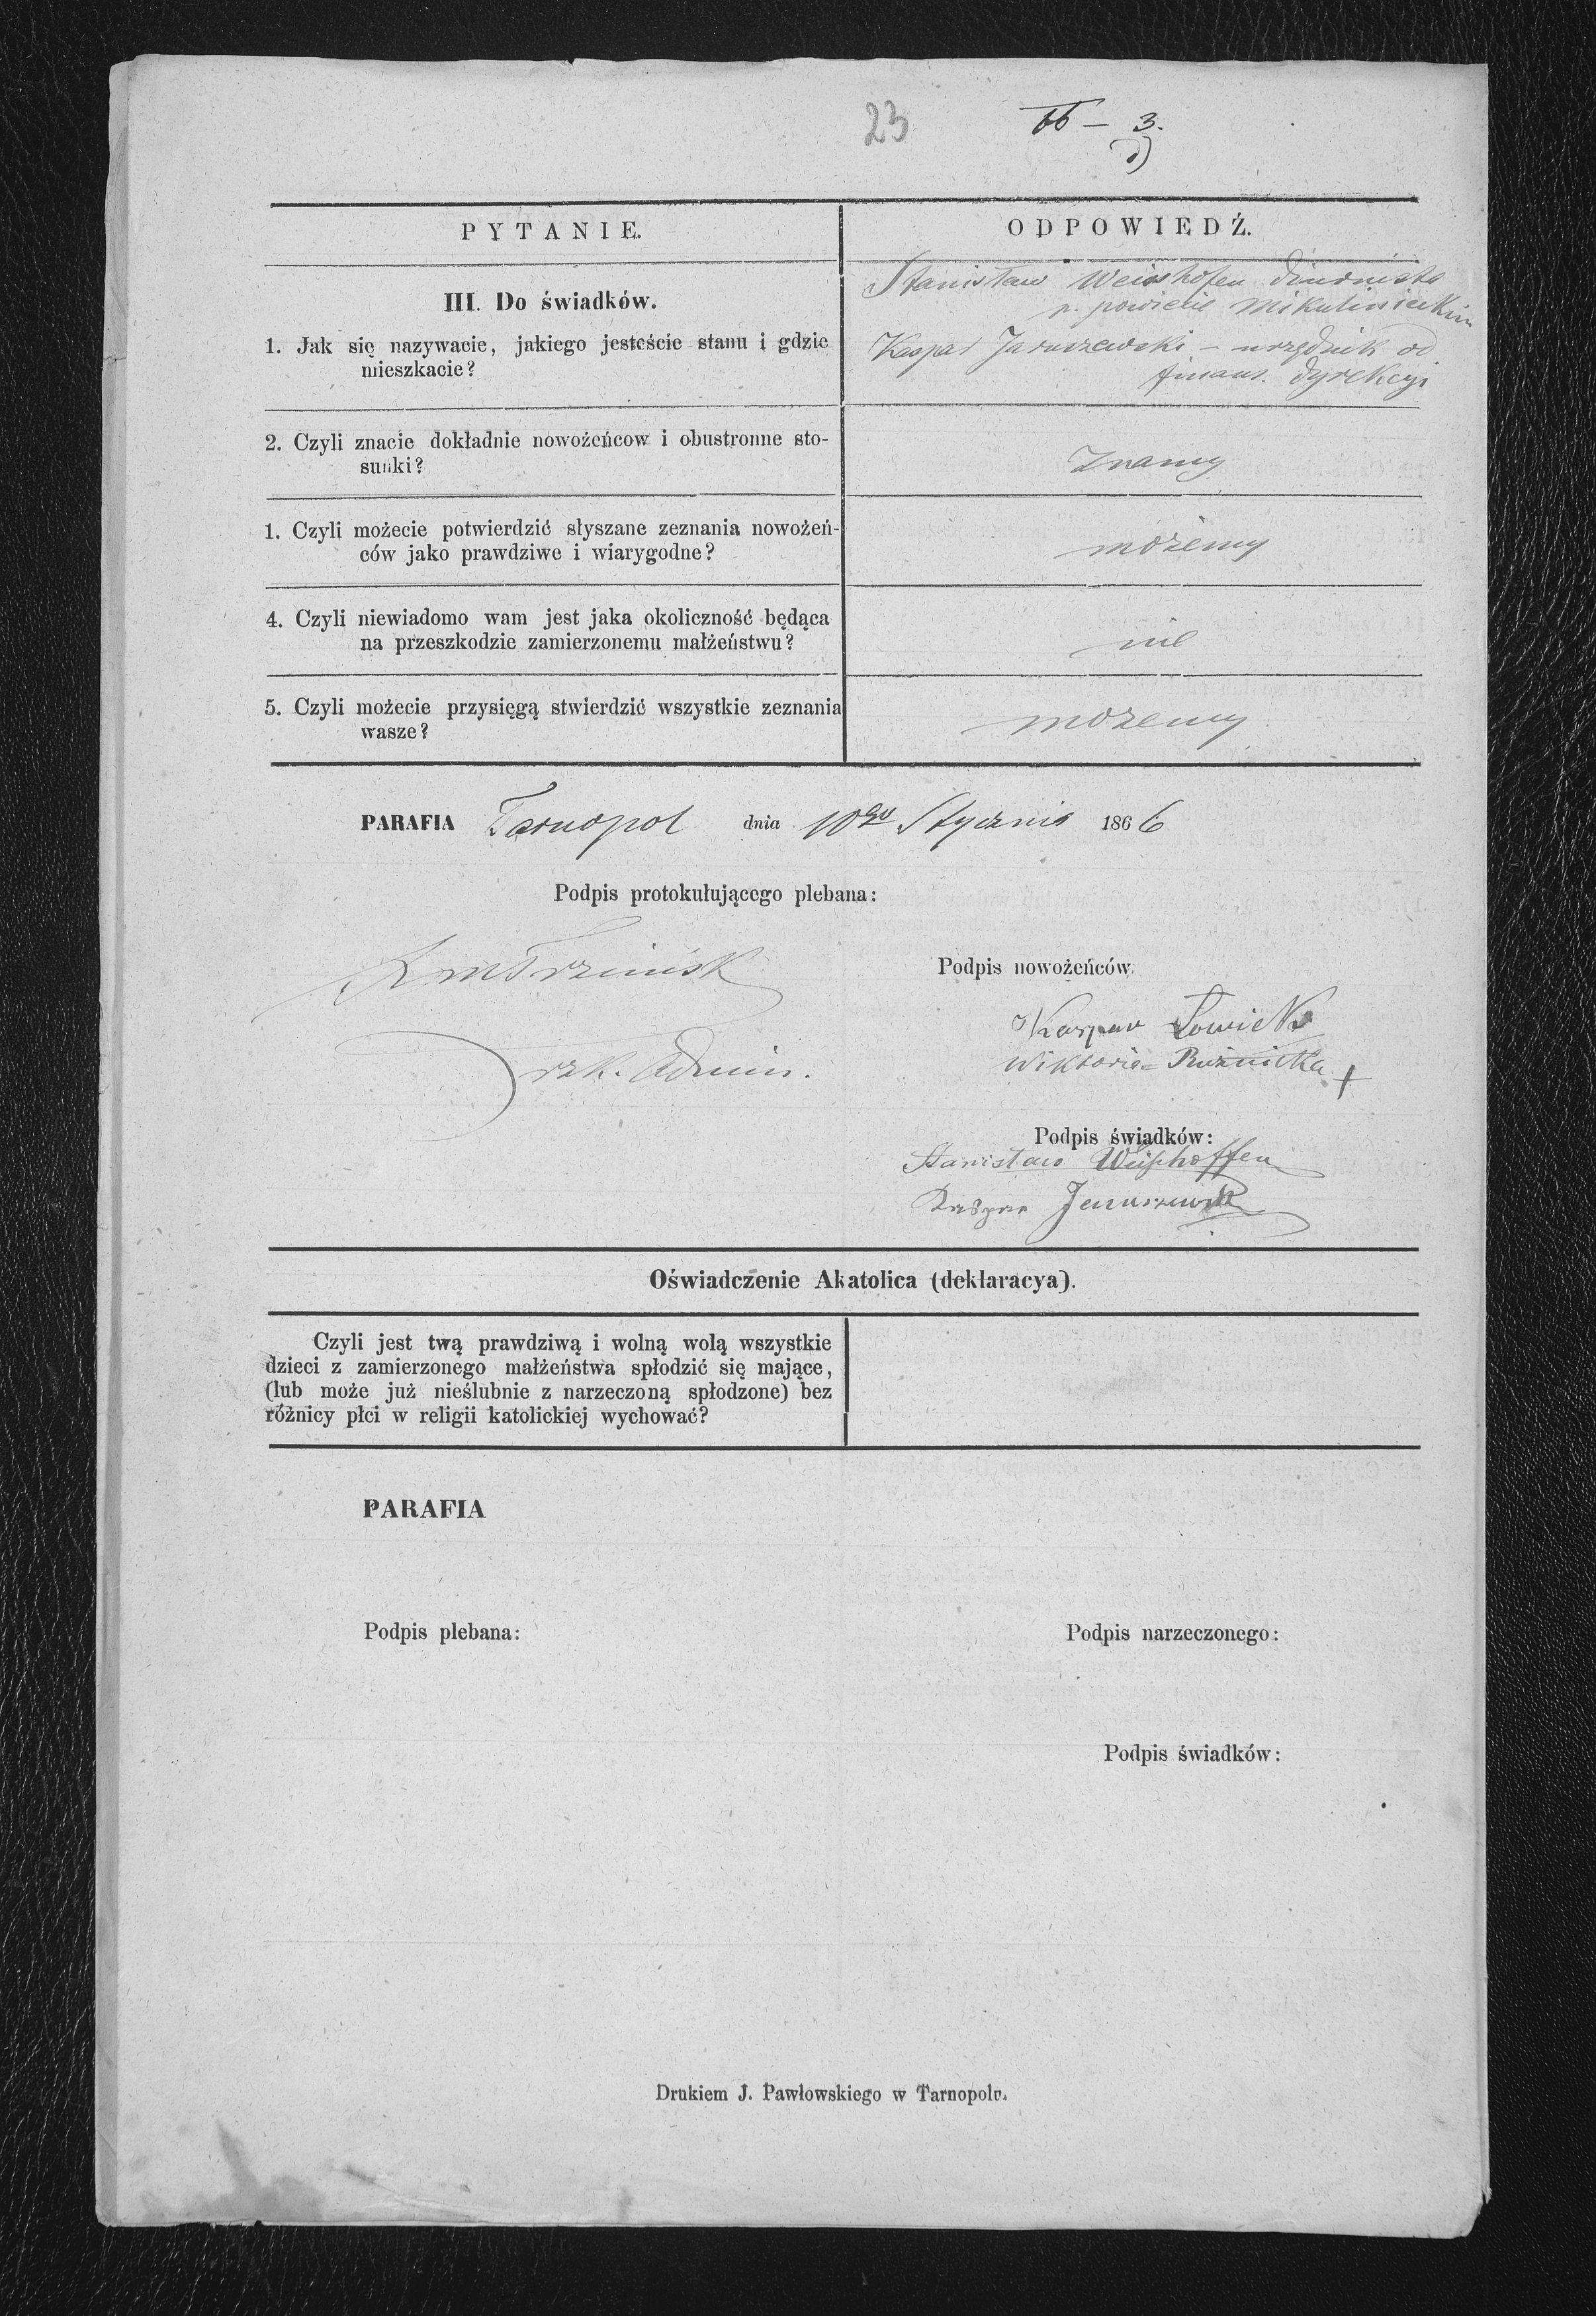 23 66 – 3.
PYTANIE.
ODPOWIEDŹ.
III. Do świadków.
1. Jak się nazywacie, jakiego jesteście stanu i gdzie
mieszkacie?
Stanisław Weisshofen diurnista
p. powiecie Mikulinieckim
Kaspar Jaruszewski – urzędnik od
finans. dyrekcyi
2. Czyli znacie dokładnie nowożeńcow i obustronne sto-
sunki?
Znamy
1. Czyli możecie potwierdzić słyszane zeznania nowożeń-
ców jako prawdziwe i wiarygodne?
możemy
4. Czyli niewiadomo wam jest jaka okoliczność będąca
na przeszkodzie zamierzonemu małżeństwu?
nie
5. Czyli możecie przysięgą stwierdzić wszystkie zeznania
wasze?
możemy
PARAFIA Tarnopol dnia 10go Stycznia 1866
Podpis protokułującego plebana:
rzk. Admin.
Podpis nowożeńców
Kaspar Łowicki
Wiktoria Ruźnicka +
Podpis świadków:
Stanisław Weishoffen
Kaspar Jaruszewski
Oświadczenie Akatolica (deklaracya).
Czyli jest twą prawdziwą i wolną wolą wszystkie
dzieci z zamierzonego małżeństwa spłodzić się mające,
(lub może już nieślubnie z narzeczoną spłodzone) bez
różnicy płci w religii katolickiej wychować?
PARAFIA
Podpis plebana:
Podpis narzeczonego:
Podpis świadków:
Drukiem J. Pawłowskiego w Tarnopolu.